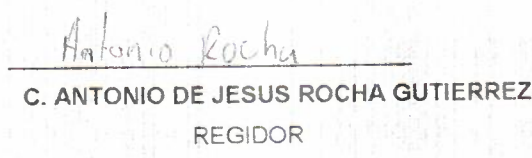 Antonio Rocha
C. ANTONIO DE JESUS ROCHA GUTIERREZ
REGIDOR